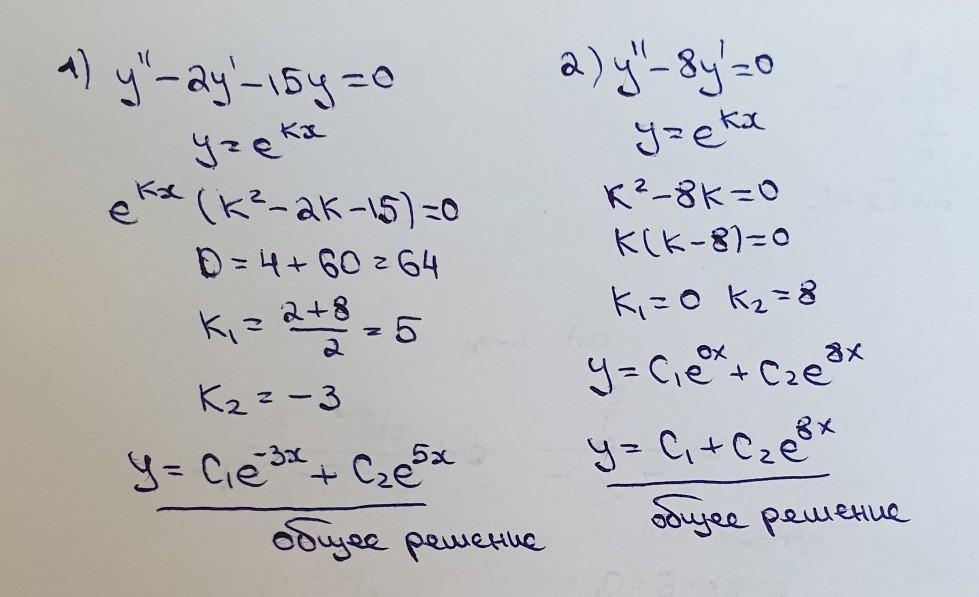 1) y'' - 2y' - 15y = 0
y = e^{kx}
e^{kx} (k² - 2k - 15) = 0
D = 4 + 60 = 64
k₁ = \frac{2+8}{2} = 5
k₂ = -3
y = C₁e^{-3x} + C₂e^{5x}
общее решение
2) y'' - 8y' = 0
y = e^{kx}
k² - 8k = 0
k(k - 8) = 0
k₁ = 0 k₂ = 8
y = C₁e^{0x} + C₂e^{8x}
y = C₁ + C₂e^{8x}
общее решение